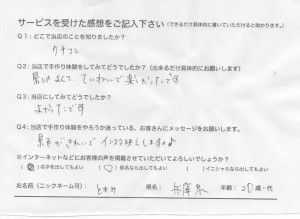 サービスを受けた感想をご記入下さい(できるだけ具体的に書いていただけると助かります。)
Q1:どこで当店のことを知りましたか?
クチコミ
Q2:当店で手作り体験をしてみてどうでしたか? (出来るだけ具体的にお願いします)
景しきよくて、ていねいで楽しかったです
Q3:当店にしてみてどうでしたか?
よかったです
Q4:当店で手作り体験をやろうか迷っている、お客さんにメッセージをお願いします。
景色がきれいでインスタ映えしますよ
※インターネットなどにお客様の声を掲載させていただいてよろしいでしょうか?
( )名字を出してもよい ( )仮名ならを出してもよい ( )イニシャルなら出してもよい
お名前(ニックネーム可): ともみ 県名: 兵庫県 年齢:20歳・代